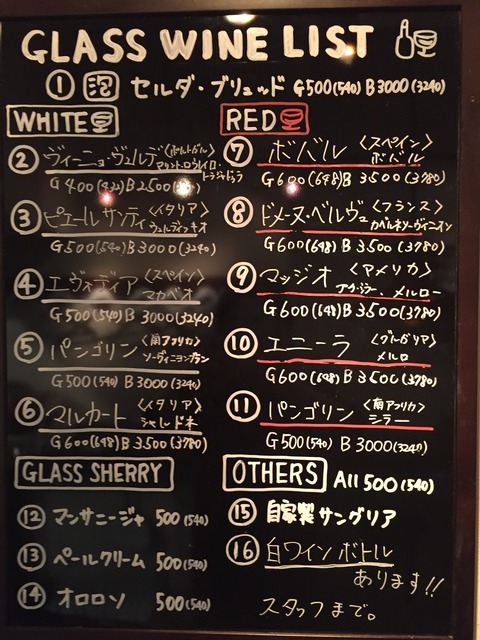 GLASS WINE LIST
① 泡 セルダ・ブリュッド G500(540) B3000(3240)
WHITE
② ヴィーニョ・ヴェルデ 〈ポルトガル〉
トラジャドゥラ
G400(432) B2500
③ ピエールサンティ 〈イタリア〉
G500(540) B3000(3240)
④ エヴォディア 〈スペイン〉
マカベオ
G500(540) B3000(3240)
⑤ パンゴリン 〈南アフリカ〉
ソーヴィニヨンブラン
G500(540) B3000(3240)
⑥ マルカート 〈イタリア〉
シャルドネ
G600(648) B3500(3780)
GLASS SHERRY
⑫ マンサニージャ 500(540)
⑬ ペールクリーム 500(540)
⑭ オロロソ 500(540)
RED
⑦ ボバル 〈スペイン〉
ボバル
G600(648) B3500(3780)
⑧ ドメーヌ・ベルヴュ 〈フランス〉
カベルネソーヴィニオン
G600(648) B3500(3780)
⑨ マッジオ 〈アメリカ〉
メルロー
G600(648) B3500(3780)
⑩ エニーラ 〈ブルガリア〉
メルロ
G600(648) B3500(3780)
⑪ パンゴリン 〈南アフリカ〉
シラー
G500(540) B3000(3240)
OTHERS All 500(540)
⑮ 自家製サングリア
⑯ 白ワインボトル
あります!!
スタッフまで。